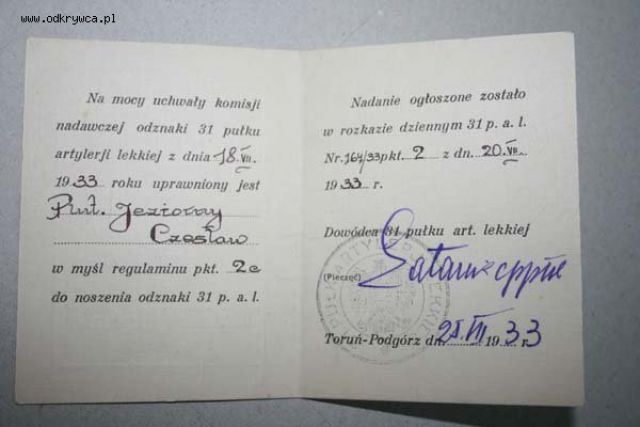 www.odkrywca.pl
Na mocy uchwały komisji
nadawczej odznaki 31 pułku
artylerji lekkiej z dnia 18.VII.
1933 roku uprawniony jest
Czesław
w myśl regulaminu pkt. 2c
do noszenia odznaki 31 p. a. l.
Nadanie ogłoszone zostało
w rozkazie dziennym 31 p. a. l.
Nr. 164/33 pkt. 2 z dn. 20.VII.
1933 r.
Dowódca 31 pułku art. lekkiej
(Pieczęć)
Toruń-Podgórz dn. 25.VII 1933 r.